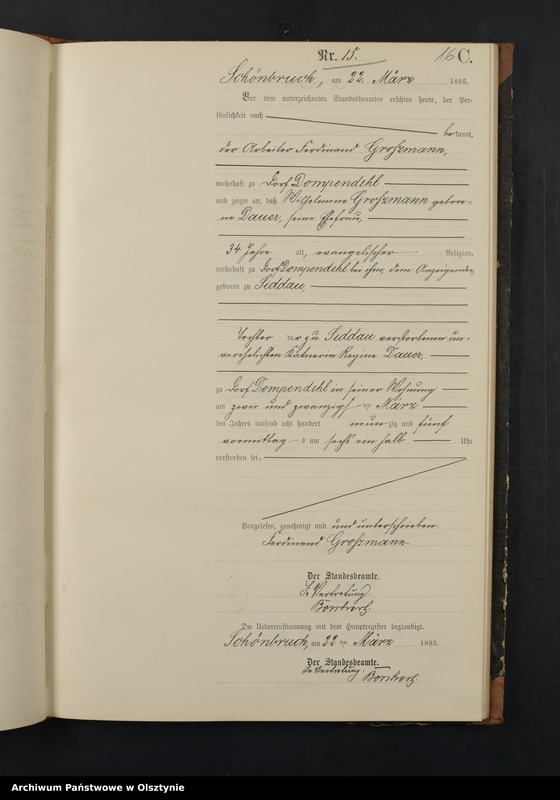 Nr. 15. 16 C.
Schönbruch, am 22. März 1895.
Vor dem unterzeichneten Standesbeamten erschien heute, der Per-
sönlichkeit nach
bekannt,
der Arbeiter Ferdinand Groszmann,
wohnhaft zu Dorf Dompendehl
und zeigte an, daß Wilhelmine Groszmann gebore-
ne Dauer, seine Ehefrau,
34 Jahre alt, evangelischer Religion,
wohnhaft zu Dorf Dompendehl bei ihm, dem Anzeigenden,
geboren zu Liddau,
Tochter der zu Liddau verstorbenen un-
verehelichten Käthnerin Regine Dauer,
zu Dorf Dompendehl in seiner Wohnung
am zwei und zwanzigsten März
des Jahres tausend acht hundert neunzig und fünf
vormittags um sechs ein halb Uhr
verstorben sei.
Vorgelesen, genehmigt und unterschrieben.
Ferdinand Groszmann
Der Standesbeamte.
In Vertretung.
Die Uebereinstimmung mit dem Hauptregister beglaubigt.
Schönbruch, am 22 ten März 1895.
Der Standesbeamte.
In Vertretung.
Archiwum Państwowe w Olsztynie